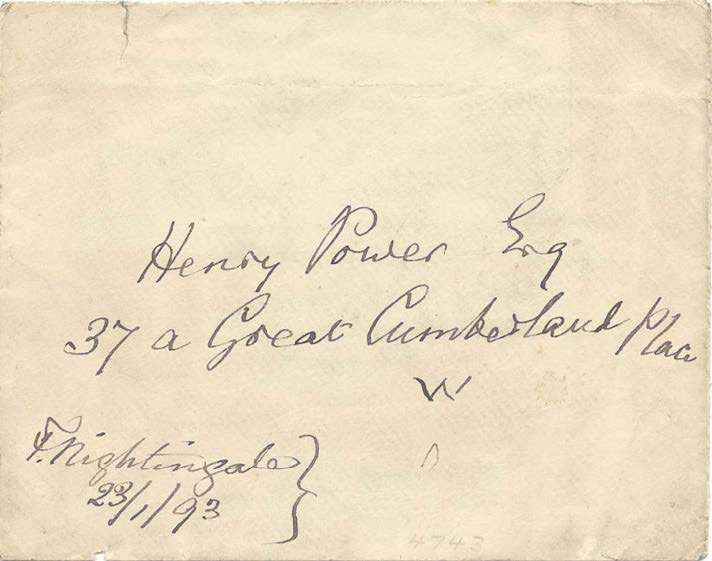 Henry Power Esq
37 a Great Cumberland Place
W
F. Nightingale
23/1/93
4743